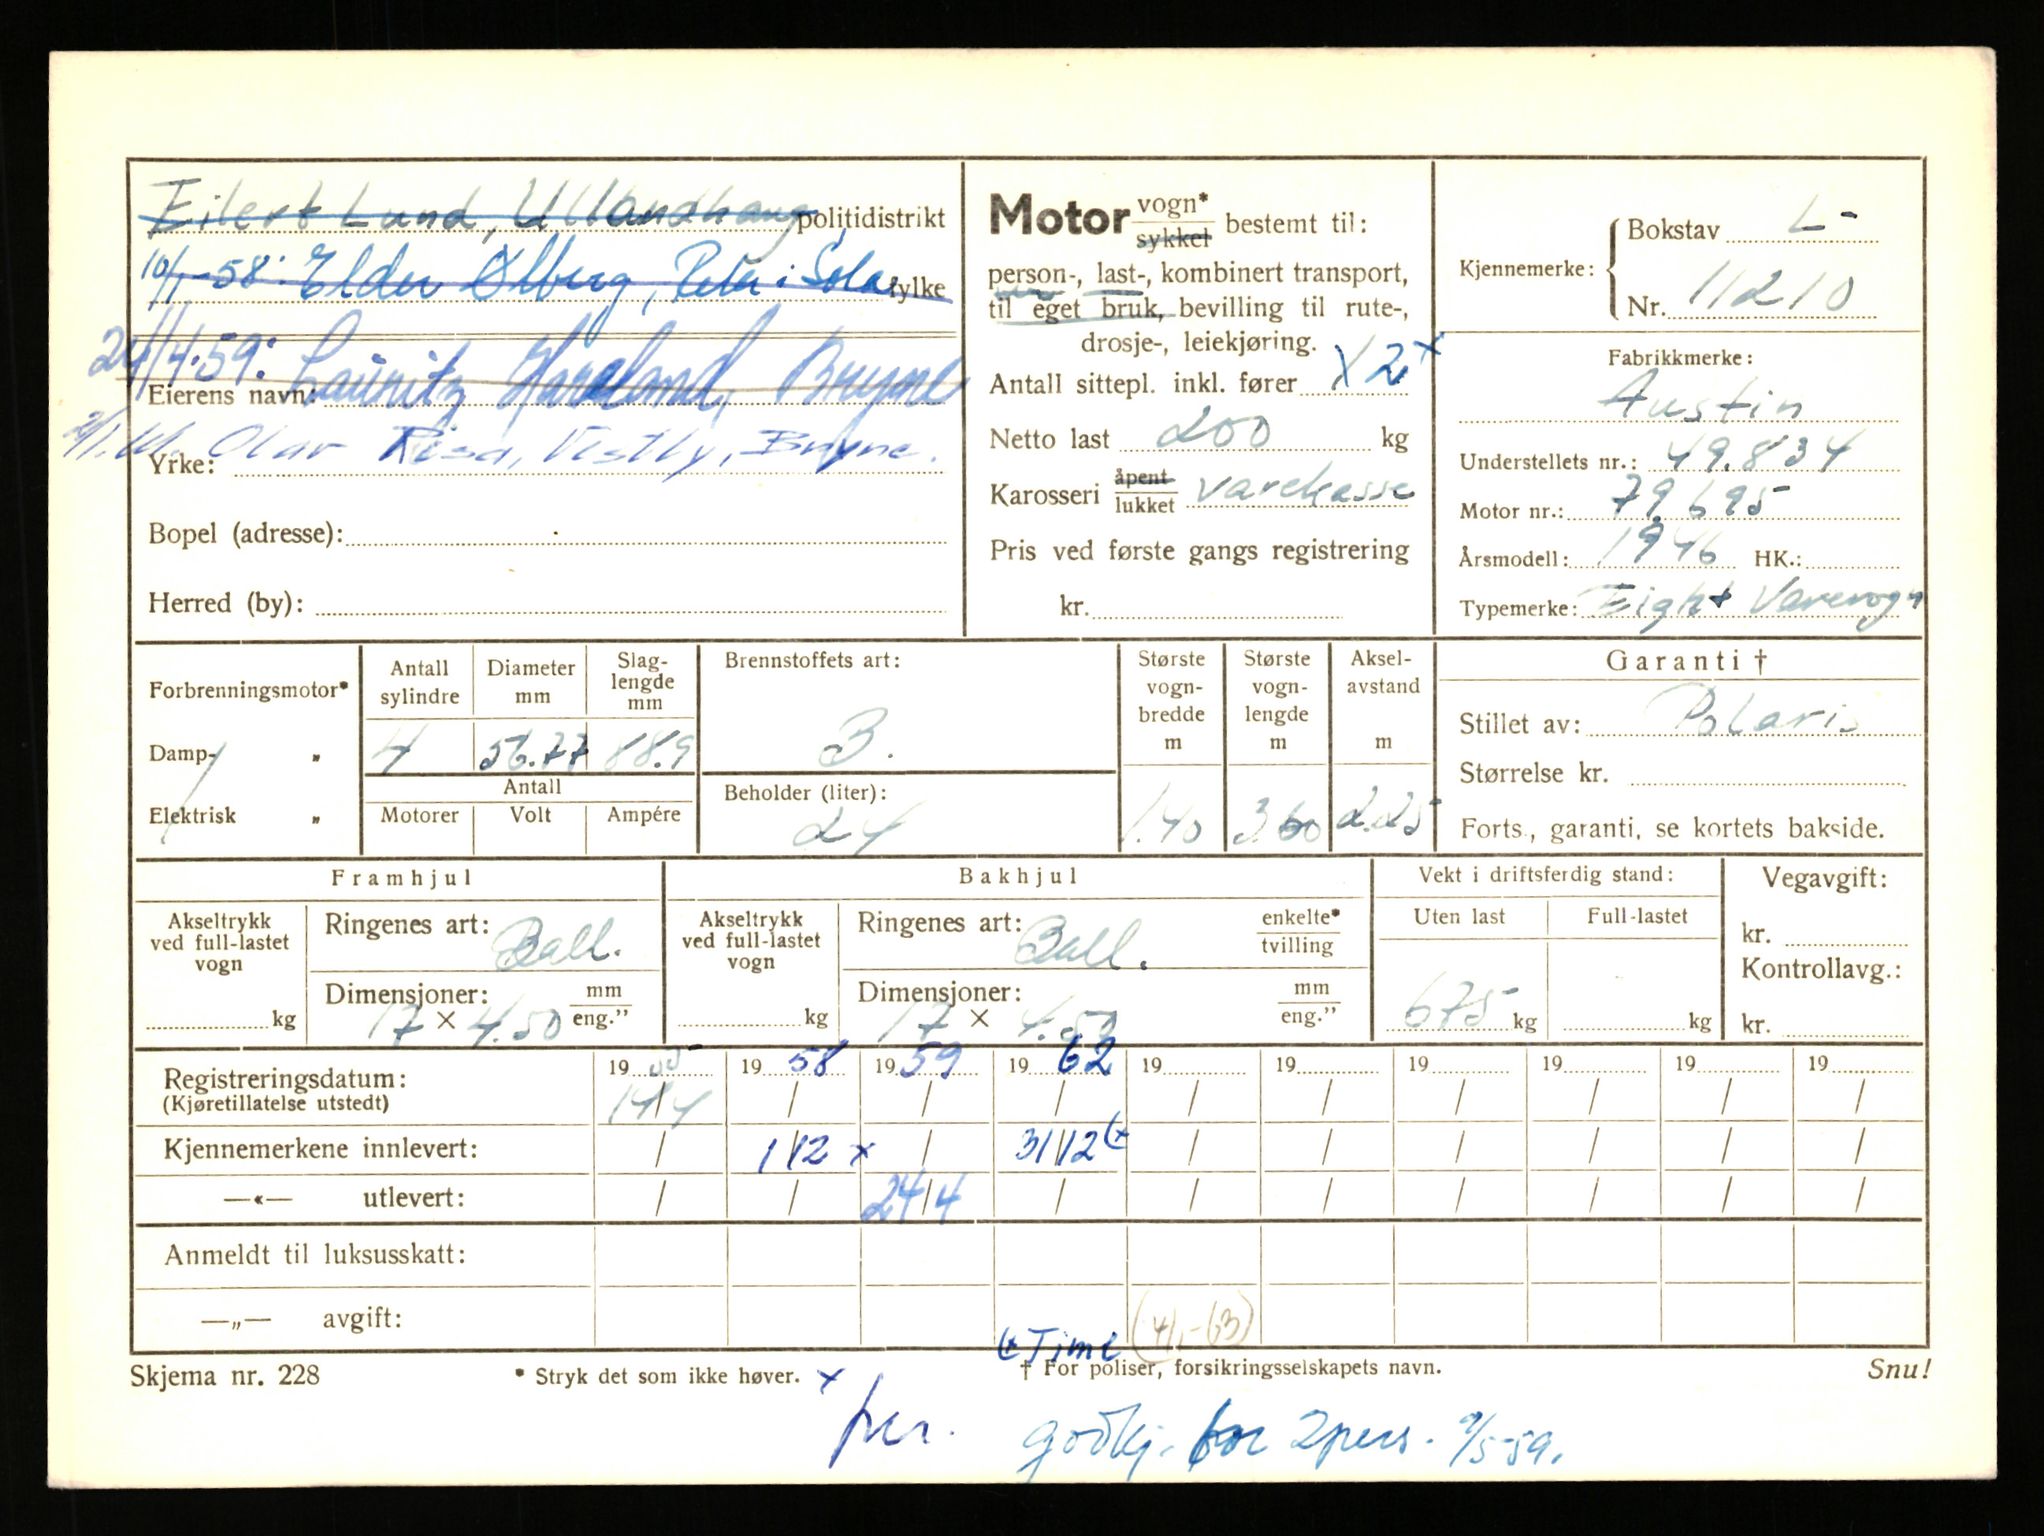 Eilert Lund, Ullandhaug politidistrikt
10/1-58: Elder Ølberg, i Sola fylke
24/4-59: Lauritz Haveland, Bryne
Eierens navn:
Olav Risa, Vestly, Bryne.
Yrke:
Bopel (adresse):
Herred (by):
Motor vogn*
sykkel bestemt til:
person-, last-, kombinert transport,
til eget bruk, bevilling til rute-,
drosje-, leiekjøring.
Antall sittepl. inkl. fører 2 x
Netto last 200 kg
Karosseri åpent
lukket varekasse
Pris ved første gangs registrering
kr.
Kjennemerke:
Bokstav L-
Nr. 11210
Fabrikkmerke:
Austin
Understellets nr.: 49.834
Motor nr.: 79.695
Årsmodell: 1946 HK.:
Typemerke: Eight Varevogn
Forbrenningsmotor*
Damp- „
Elektrisk „
Antall sylindre
4
Diameter mm
56.77
Slag-lengde mm
88.9
Antall
Motorer Volt Ampére
Brennstoffets art:
B.
Beholder (liter):
24
Største vogn-bredde m
1.40
Største vogn-lengde m
3.60
Aksel-avstand m
2.25
Garanti †
Stillet av: Polaris
Størrelse kr.
Forts., garanti, se kortets bakside.
Framhjul
Akseltrykk ved full-lastet vogn
kg
Ringenes art: Ball.
Dimensjoner: mm
17 × 4.50 eng.”
Bakhjul
Akseltrykk ved full-lastet vogn
kg
Ringenes art: Ball. enkelte*
tvilling
Dimensjoner: mm
17 × 4.50 eng.”
Vekt i driftsferdig stand:
Uten last Full-lastet
675 kg kg
Vegavgift:
kr.
Kontrollavg.:
kr.
Registreringsdatum: 1955 1958 1959 1962 19 19 19 19 19 19
(Kjøretillatelse utstedt) 14/4 / / / / / / / / /
Kjennemerkene innlevert: / 1/12 x / 31/12 (x / / / / / /
—«— utlevert: / / 24/4 / / / / / / /
Anmeldt til luksusskatt:
—„— avgift:
(x Time
(4/1-63)
Skjema nr. 228
* Stryk det som ikke høver. x
† For poliser, forsikringsselskapets navn.
Snu!
godkj. for 2 pers. 9/5-59.